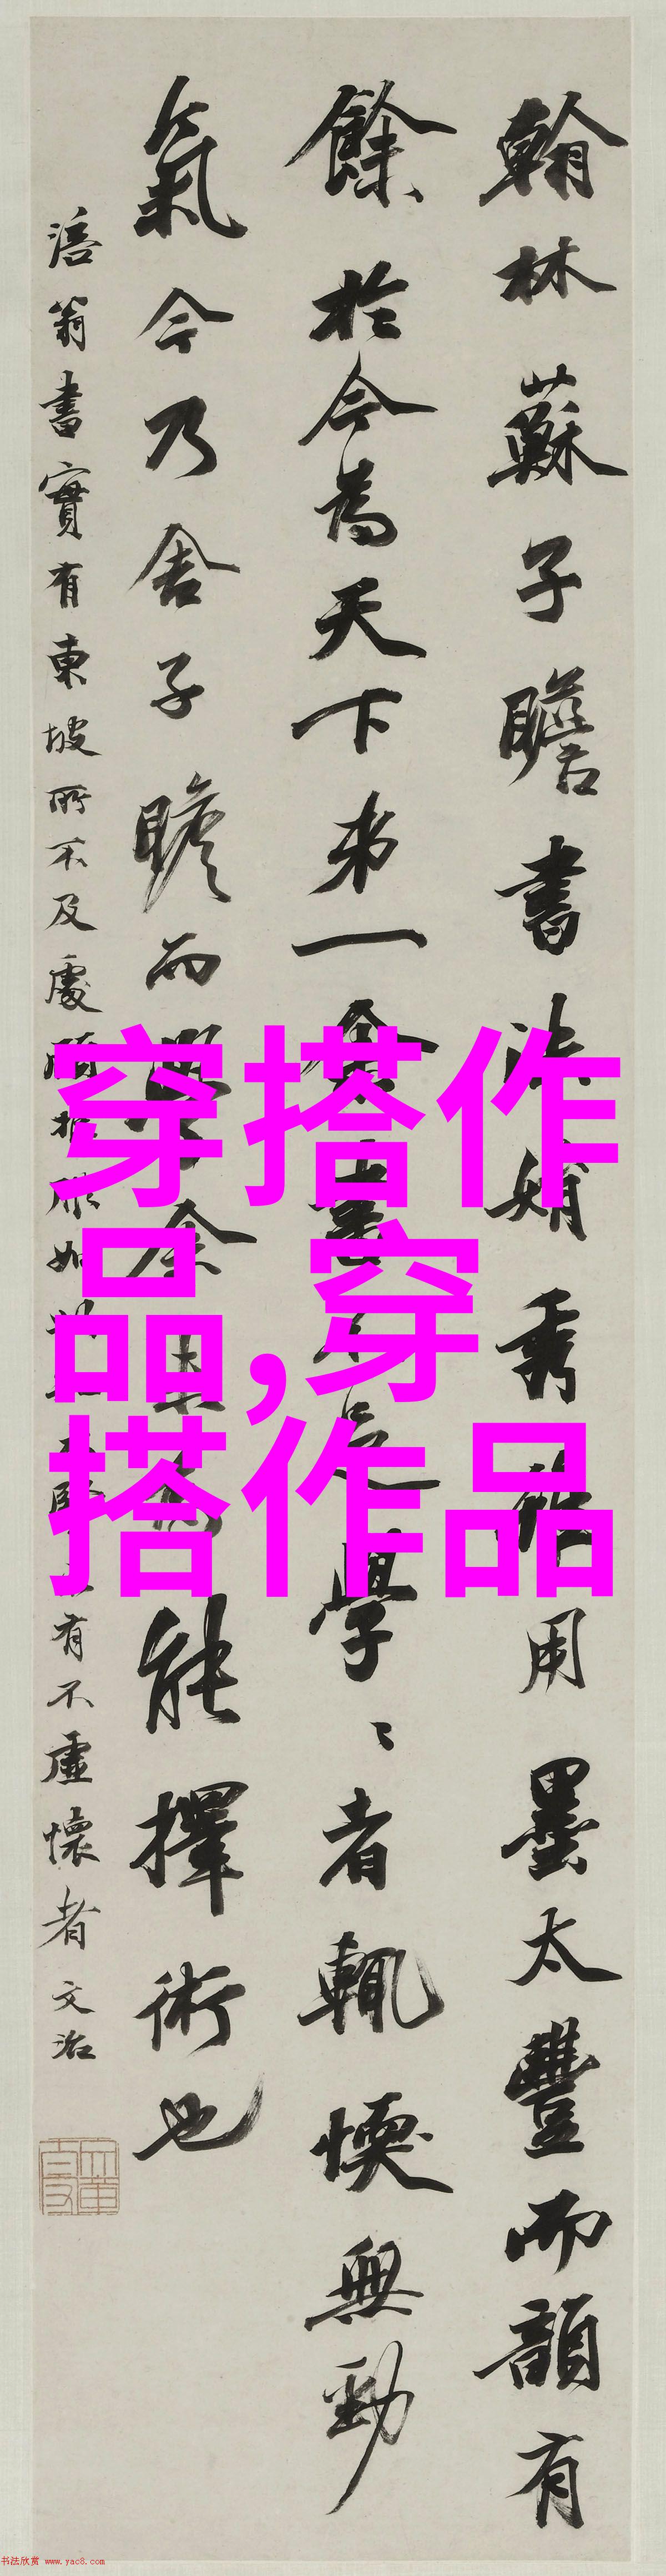 翰林蘇子瞻書法娟秀雖用墨太豐而韻有
餘於今為天下第一余書不足學〻者輒愞無勁
氣今乃舍子瞻而學余未為能擇術也
涪翁書實有東坡所不及處顧推服如有不虛懷者文治
穿搭作
品,穿
搭作品
书法欣赏 www.yac8.com